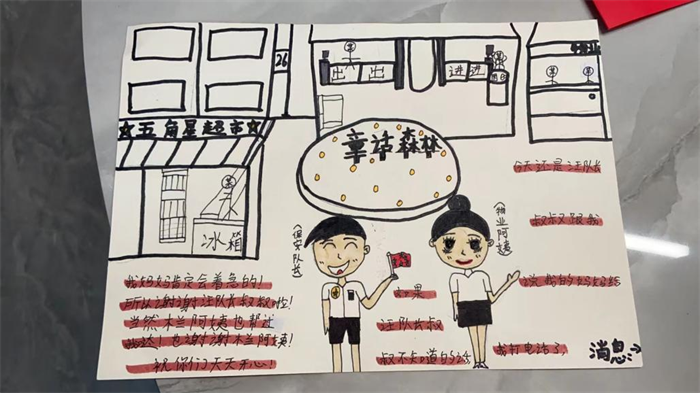 26
☆五角星超市☆
冰箱
出 出
进 进
童话森林
(保安队长)
(物业阿姨)
今天还是汪队长
叔叔跟我
说我的妈妈给
我打电话了,
如果
汪队长叔
叔不知道的话,
我妈妈肯定会着急的!
所以谢谢汪队长叔叔啦!
当然木兰阿姨也帮过
我达!也谢谢木兰阿姨!
祝你们天天开心!
消息